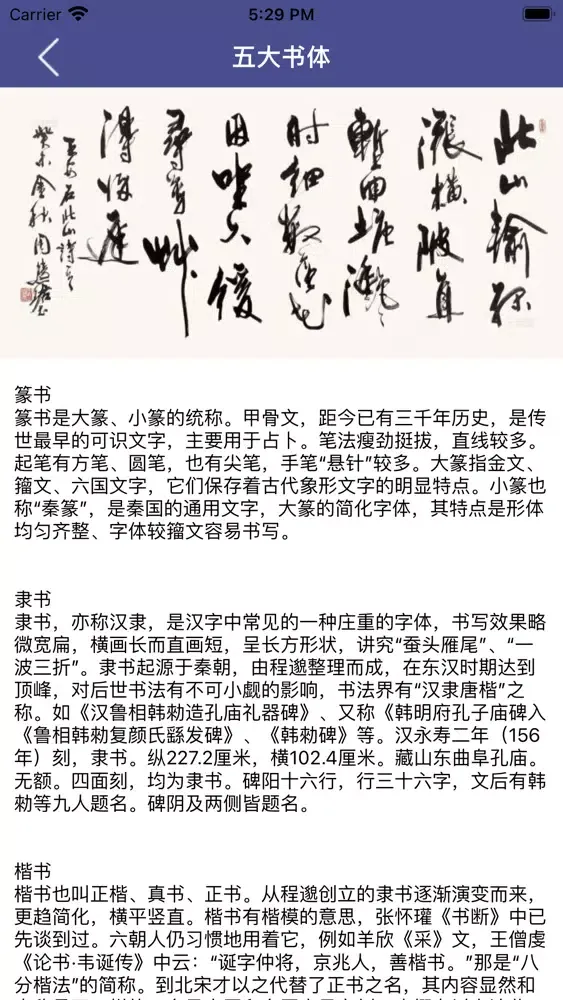 Carrier 5:29 PM
五大书体
北山输绿
涨横陂直
堑回塘滟々
时细数落花
因坐久缓
寻芳草
得归迟
王安石北山诗
癸未金秋周慧珺
篆书
篆书是大篆、小篆的统称。甲骨文，距今已有三千年历史，是传
世最早的可识文字，主要用于占卜。笔法瘦劲挺拔，直线较多。
起笔有方笔、圆笔，也有尖笔，手笔“悬针”较多。大篆指金文、
籀文、六国文字，它们保存着古代象形文字的明显特点。小篆也
称“秦篆”，是秦国的通用文字，大篆的简化字体，其特点是形体
均匀齐整、字体较籀文容易书写。
隶书
隶书，亦称汉隶，是汉字中常见的一种庄重的字体，书写效果略
微宽扁，横画长而直画短，呈长方形状，讲究“蚕头雁尾”、“一
波三折”。隶书起源于秦朝，由程邈整理而成，在东汉时期达到
顶峰，对后世书法有不可小觑的影响，书法界有“汉隶唐楷”之
称。如《汉鲁相韩勑造孔庙礼器碑》、又称《韩明府孔子庙碑入
《鲁相韩勑复颜氏繇发碑》、《韩勑碑》等。汉永寿二年（156
年）刻，隶书。纵227.2厘米，横102.4厘米。藏山东曲阜孔庙。
无额。四面刻，均为隶书。碑阳十六行，行三十六字，文后有韩
勑等九人题名。碑阴及两侧皆题名。
楷书
楷书也叫正楷、真书、正书。从程邈创立的隶书逐渐演变而来，
更趋简化，横平竖直。楷书有楷模的意思，张怀瓘《书断》中已
先谈到过。六朝人仍习惯地用着它，例如羊欣《采》文，王僧虔
《论书·韦诞传》中云：“诞字仲将，京兆人，善楷书。”那是“八
分楷法”的简称。到北宋才以之代替了正书之名，其内容显然和